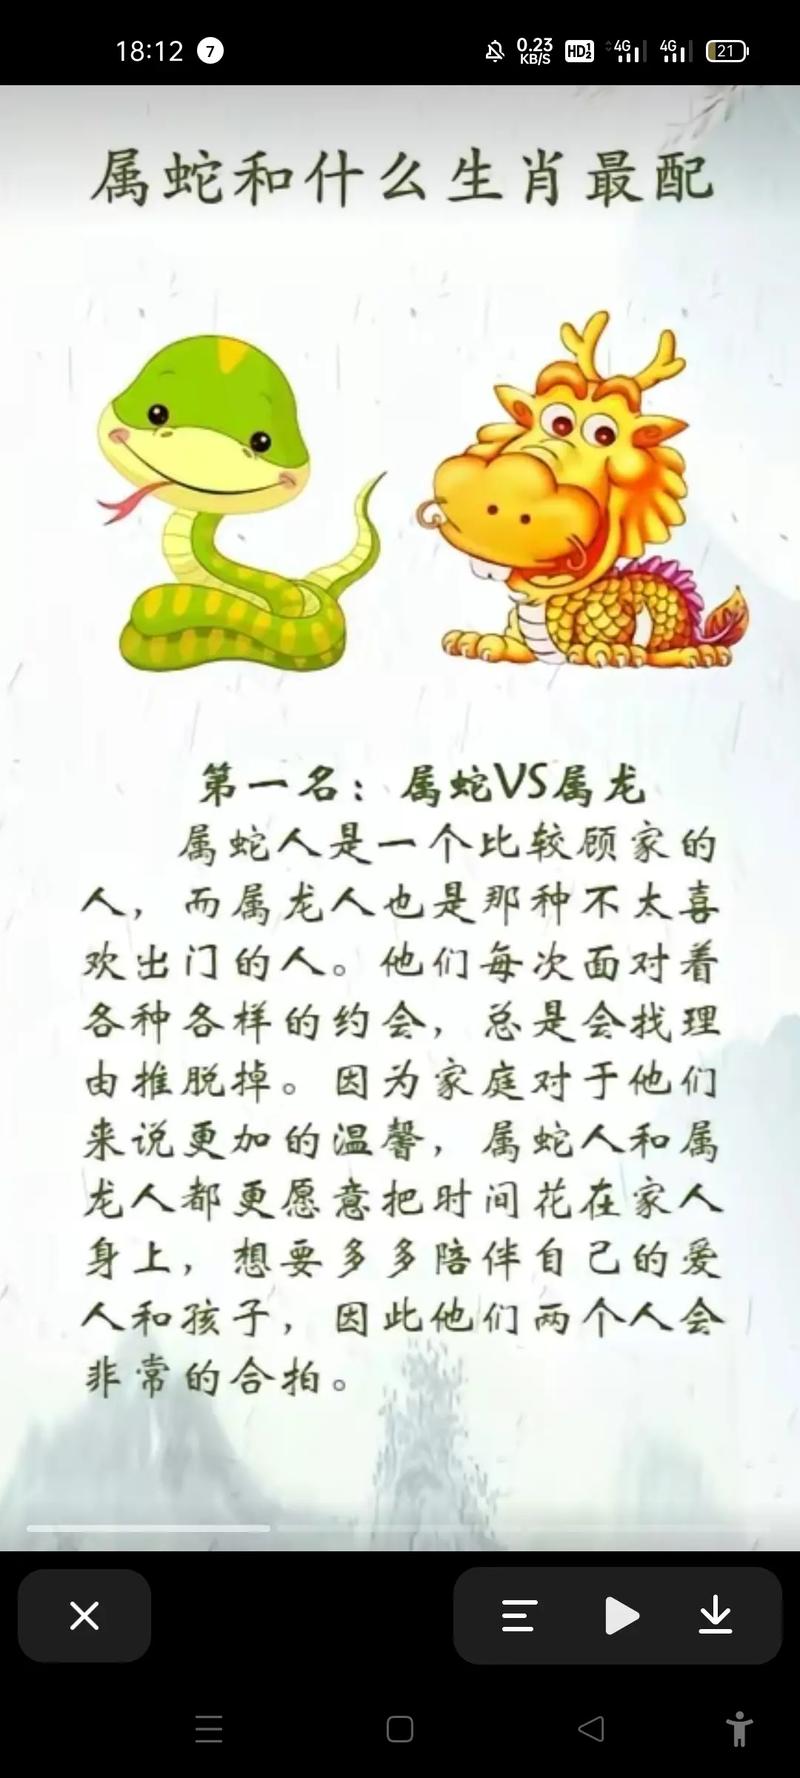 18:12 7 0.23 KB/S HD 1 2 4G 4G 21
属蛇和什么生肖最配
第一名：属蛇VS属龙
属蛇人是一个比较顾家的
人，而属龙人也是那种不太喜
欢出门的人。他们每次面对着
各种各样的约会，总是会找理
由推脱掉。因为家庭对于他们
来说更加的温馨，属蛇人和属
龙人都更愿意把时间花在家人
身上，想要多多陪伴自己的爱
人和孩子，因此他们两个人会
非常的合拍。